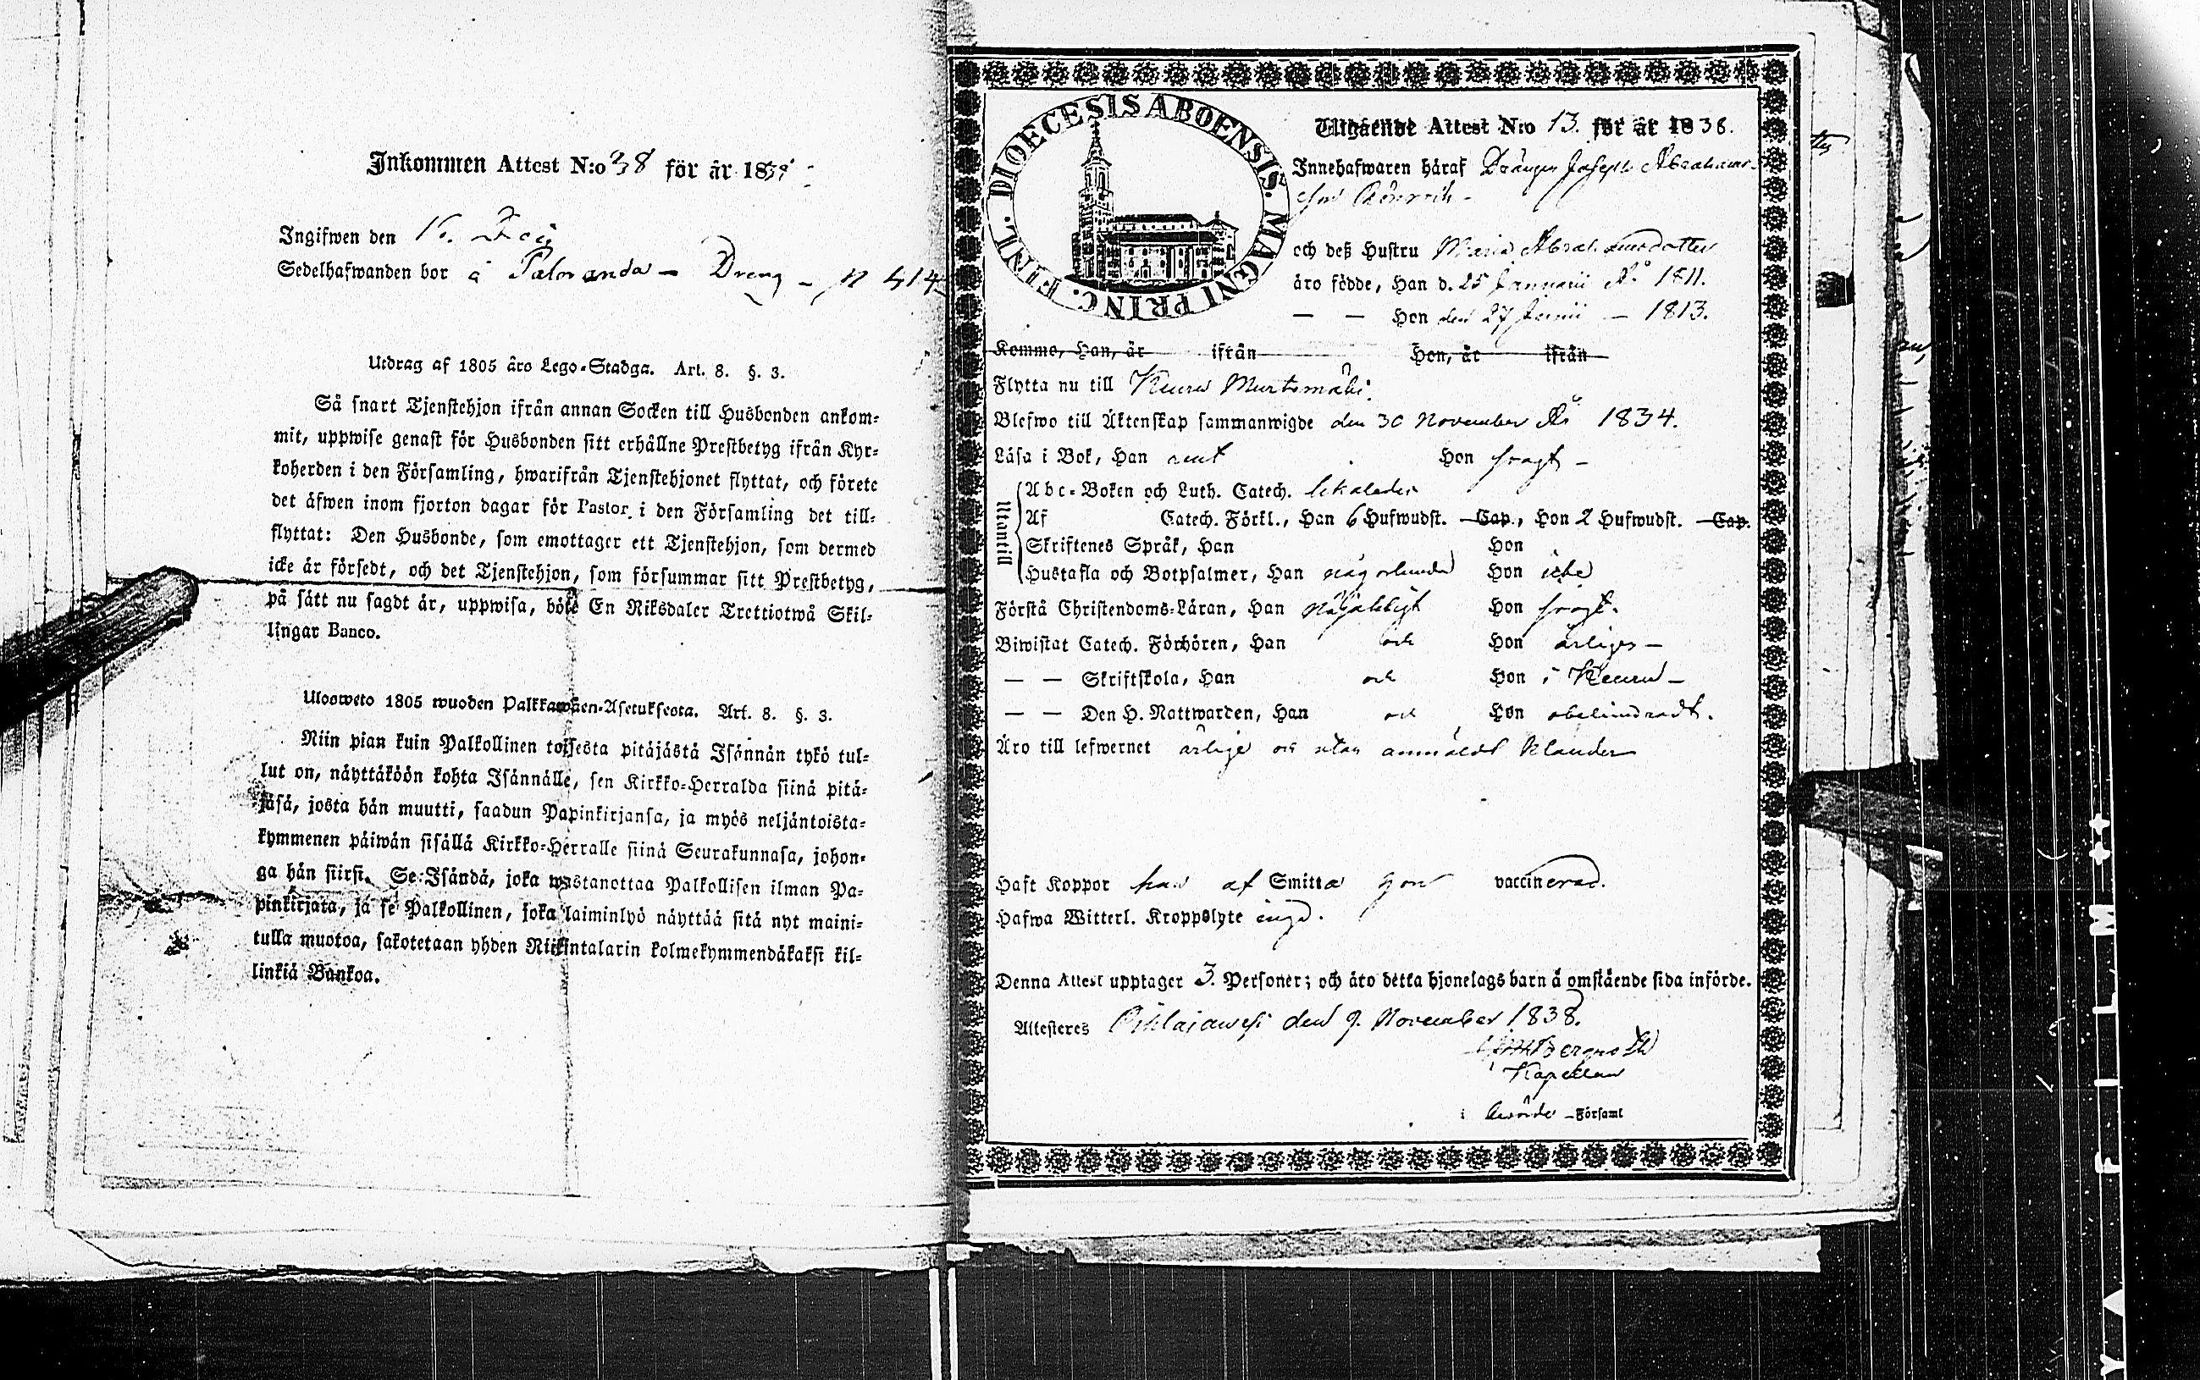 Inkommen Attest N:o 38 för år 183
Ingifwen den
Sedelhafwanden bor å Paloranda – Dreng – p 414
Utdrag af 1805 års Lego-Stadga. Art. 8. §. 3.
Så snart Tjenstehjon ifrån annan Socken till Husbonden ankom-
mit, uppwise genast för Husbonden sitt erhållne Prestbetyg ifrån Kyr-
koherden i den Församling, hwarifrån Tjenstehjonet flyttat, och förete
det äfwen inom fjorton dagar för Pastor i den Församling det till-
flyttat: Den Husbonde, som emottager ett Tjenstehjon, som dermed
icke är försedt, och det Tjenstehjon, som försummar sitt Prestbetyg,
på sätt nu sagdt är, uppwisa, böte En Riksdaler Trettiotwå Skil-
lingar Banco.
Ulosweto 1805 wuoden Palkkawäen-Asetuksesta. Art. 8. §. 3.
Niin pian kuin Palkollinen toisesta pitäjästä Isännän tykö tul-
lut on, näyttäköön kohta Isännälle, sen Kirkko-Herralda siinä pitä-
jäsä, josta hän muutti, saadun Papinkirjansa, ja myös neljäntoista-
kymmenen päiwän sisällä Kirkko-Herralle siinä Seurakunnasa, johon-
ga hän siirsi. Se Isändä, joka wastanottaa Palkollisen ilman Pa-
pinkirjata, ja se Palkollinen, joka laiminlyö näyttää sitä nyt maini-
tulla muotoa, sakotetaan yhden Riikintalarin kolmekymmendäkaksi kil-
linkiä Bankoa.
DIOECESIS ABOENSIS. MAGNI PRINC. FINL.
Utgående Attest N:o 13. för år 1838.
Innehafwaren häraf Drängen Joseph Abrahams-
son
och deß Hustru Maria Abrahamsdotter
äro födde, Han d. 25 Januarii År 1811.
— — Hon den 27 Junii — 1813.
Komne, Han, år ifrån Hon, år ifrån
Flytta nu till Keuru Murtomäki.
Blefwo till Äktenskap sammanwigde den 30 November År 1834.
Läsa i Bok, Han rent Hon svagt –
Utantill
Abc-Boken och Luth. Catech.
Af Catech. Förkl., Han 6 Hufwudst. Cap., Hon 2 Hufwudst. Cap.
Skriftenes Språk, Han Hon
Hustafla och Botpsalmer, Han någorlunda Hon icke
Förstå Christendoms-Läran, Han Hon svagt.
Biwistat Catech. Förhören, Han och Hon årligen –
— — Skriftskola, Han och Hon i Keuru –
— — Den H. Nattwarden, Han och Hon obehindradt.
Äro till lefwernet ärlige och utan anmäldt klander
Haft Koppor han af Smitta hon vaccinerad.
Hafwa Witterl. Kroppslyte inga.
Denna Attest upptager 3. Personer; och äro detta hjonelags barn å omstående sida införde.
Attesteres Pihlajawesi den 9. November 1838.
Bergroth
Kapellan
i Församl
Y A F I L M